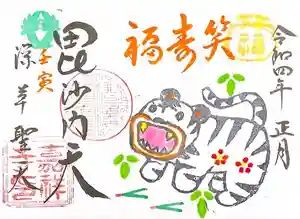 令和四年 正月
福寿笑
毘沙門天
壬寅
深草 聖天